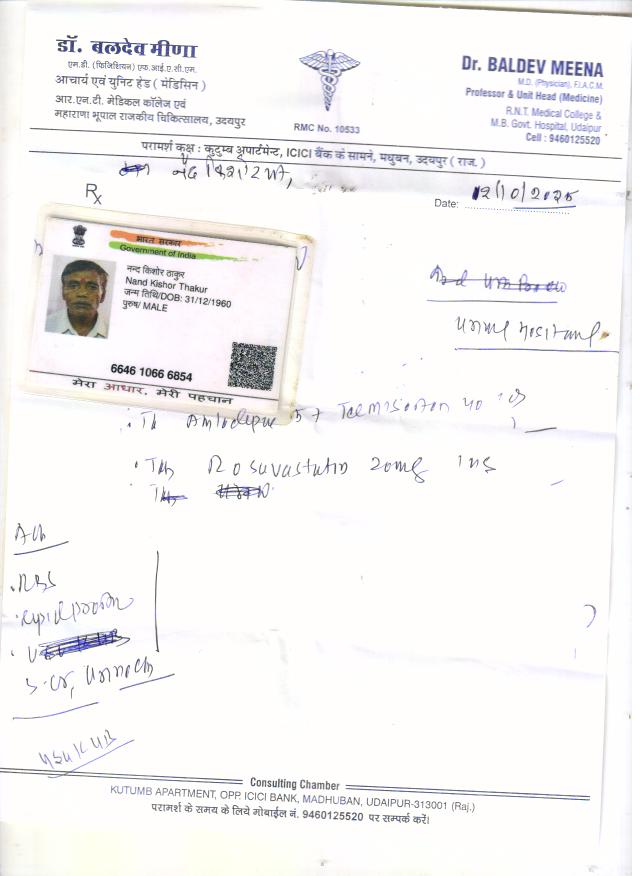 डॉ. बलदेव मीणा
एम.डी. (फिजिशियन) एफ.आई.ए.सी.एम.
आचार्य एवं यूनिट हेड ( मेडिसिन )
आर.एन.टी. मेडिकल कॉलेज एवं
महाराणा भूपाल राजकीय चिकित्सालय, उदयपुर
RMC No. 10533
Dr. BALDEV MEENA
M.D. (Physician), F.I.A.C.M.
Professor & Unit Head (Medicine)
R.N.T. Medical College &
M.B. Govt. Hospital, Udaipur
Cell : 9460125520
परामर्श कक्ष : कुटुम्ब अपार्टमेन्ट, ICICI बैंक के सामने, मधुबन, उदयपुर ( राज. )
Rx
Date: 12/10/2025
भारत सरकार
Government of India
नन्द किशोर ठाकुर
Nand Kishor Thakur
जन्म तिथि/DOB: 31/12/1960
पुरुष/ MALE
6646 1066 6854
मेरा आधार, मेरी पहचान
Telmisartan 40
Rosuvastatin 20mg
RBS
S. Cr,
Consulting Chamber
KUTUMB APARTMENT, OPP. ICICI BANK, MADHUBAN, UDAIPUR-313001 (Raj.)
परामर्श के समय के लिये मोबाईल नं. 9460125520 पर सम्पर्क करें।